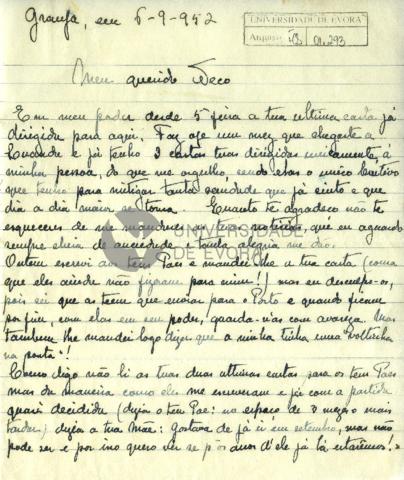 Granja, em 6-9-952
UNIVERSIDADE DE EVORA
Arquivo
Meu querido Deco
Em meu poder desde 5ª feira a tua ultima carta já
dirigida para aqui. Faz oje um mez que chegaste a
Luanda e já tenho 3 cartas tuas dirigidas unicamente á
minha pessoa, do que me orgulho, sendo elas o unico lenitivo
que tenho para mitigar tanta saudade que já sinto e que
dia a dia maior se torna. Quanto te agradeço não te
esqueceres de me mandar tuas noticias, que eu aguardo
sempre cheia de anciedade e tanta alegria me dão.
UNIVERSIDADE
DE EVORA
Ontem escrevi aos teus Pais e mandei-lhe a tua carta (coisa
que eles ainda não fizeram para mim!) mas eu desculpo-os,
pois sei que as teem que enviar para o Porto e quando ficam
por fim, com elas em seu poder, guarda-nas com avareza. Mas
tambem lhe mandei logo dizer que a minha tinha uma "voltinha
na ponta"!
Como digo não li as tuas duas ultimas cartas para os teus Pais
mas da maneira como eles me escreveram e já com a partida
quasi decidida (dizia o teu Pae: no espaço de 3 mezes o mais
tardar) dizia a tua Mãe: gostava de já ir em setembro, mas não
pode ser e por isso quero ver se p'os anos d'ele já lá estaremos!